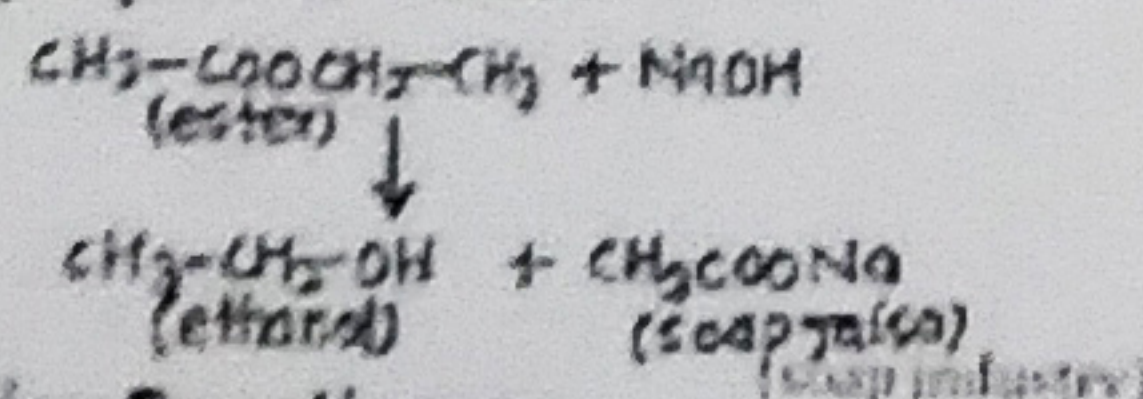 CH₃-COOCH₂-CH₃ + NaOH
(ester)
↓
CH₃-CH₂-OH + CH₃COONa
(ethanol) (soap
(soap industry